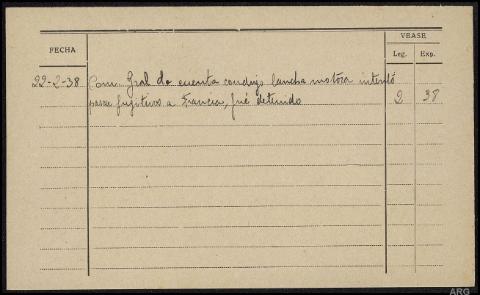 VEASE
FECHA
Leg. Exp.
22-2-38 Com. Gral da cuenta condujo lancha motora intentó
pasar fugitivos a Francia, fué detenido 2 38
ARG